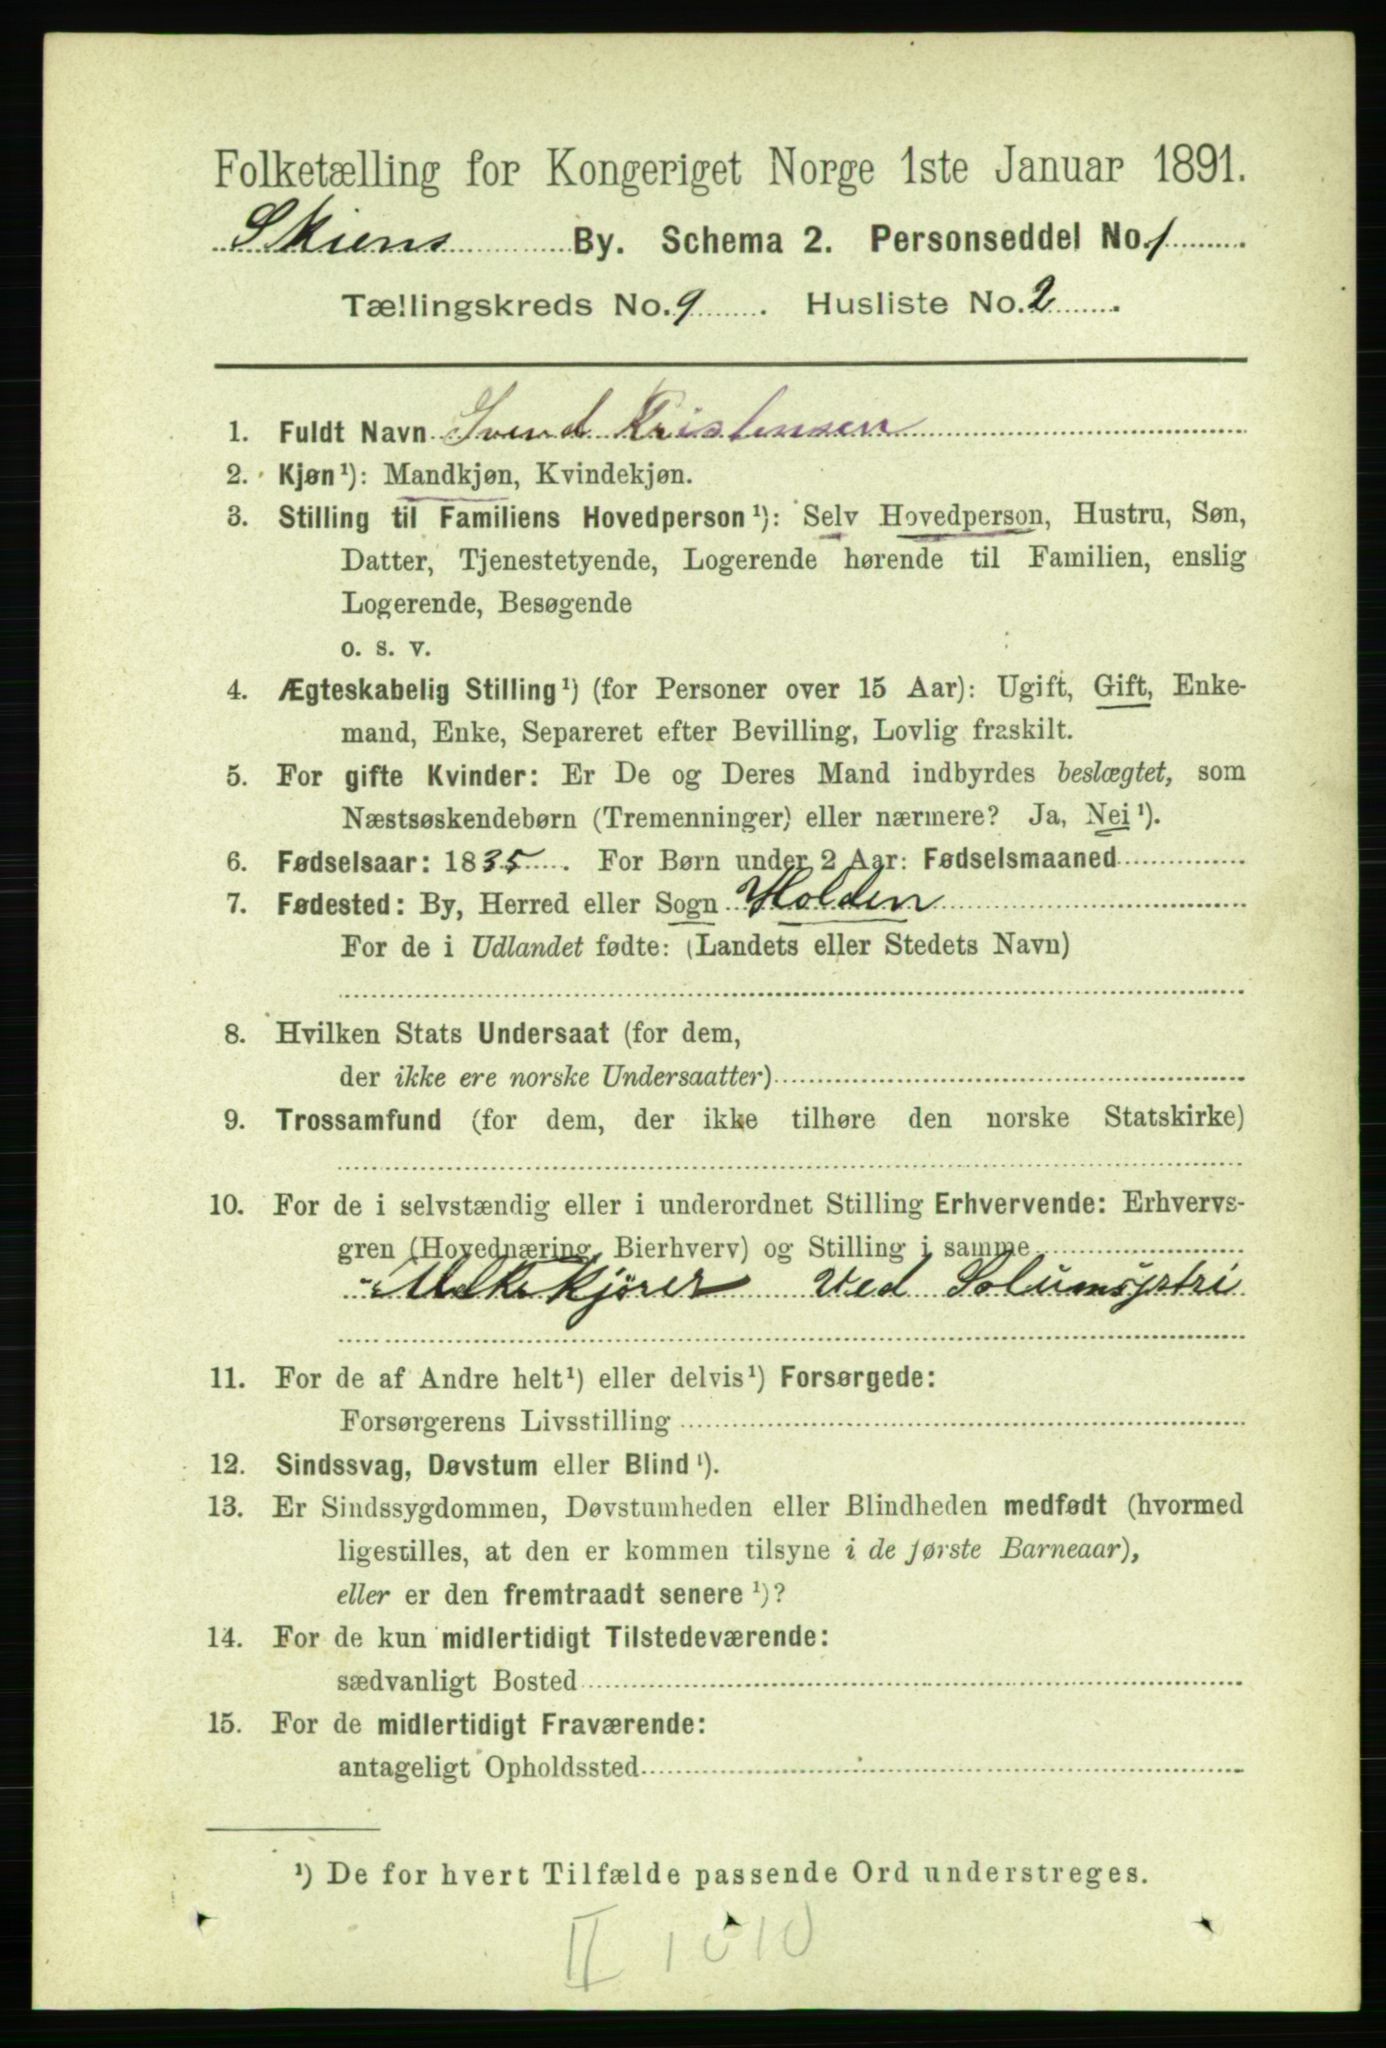 Folketælling for Kongeriget Norge 1ste Januar 1891.
Skiens By. Schema 2. Personseddel No. 1
Tællingskreds No. 9. Husliste No. 2.
1. Fuldt Navn Svend Kristensen
2. Kjøn¹): Mandkjøn, Kvindekjøn.
3. Stilling til Familiens Hovedperson¹): Selv Hovedperson, Hustru, Søn,
Datter, Tjenestetyende, Logerende hørende til Familien, enslig
Logerende, Besøgende
o. s. v.
4. Ægteskabelig Stilling¹) (for Personer over 15 Aar): Ugift, Gift, Enke-
mand, Enke, Separeret efter Bevilling, Lovlig fraskilt.
5. For gifte Kvinder: Er De og Deres Mand indbyrdes beslægtet, som
Næstsøskendebørn (Tremenninger) eller nærmere? Ja, Nei¹).
6. Fødselsaar: 1835. For Børn under 2 Aar: Fødselsmaaned
7. Fødested: By, Herred eller Sogn Holden
For de i Udlandet fødte: (Landets eller Stedets Navn)
8. Hvilken Stats Undersaat (for dem,
der ikke ere norske Undersaatter)
9. Trossamfund (for dem, der ikke tilhøre den norske Statskirke)
10. For de i selvstændig eller i underordnet Stilling Erhvervende: Erhvervs-
gren (Hovednæring, Bierhverv) og Stilling i samme
Melkekjører ved
11. For de af Andre helt¹) eller delvis¹) Forsørgede:
Forsørgerens Livsstilling
12. Sindssvag, Døvstum eller Blind¹).
13. Er Sindssygdommen, Døvstumheden eller Blindheden medfødt (hvormed
ligestilles, at den er kommen tilsyne i de første Barneaar),
eller er den fremtraadt senere¹)?
14. For de kun midlertidigt Tilstedeværende:
sædvanligt Bosted
15. For de midlertidigt Fraværende:
antageligt Opholdssted
¹) De for hvert Tilfælde passende Ord understreges.
II 1010